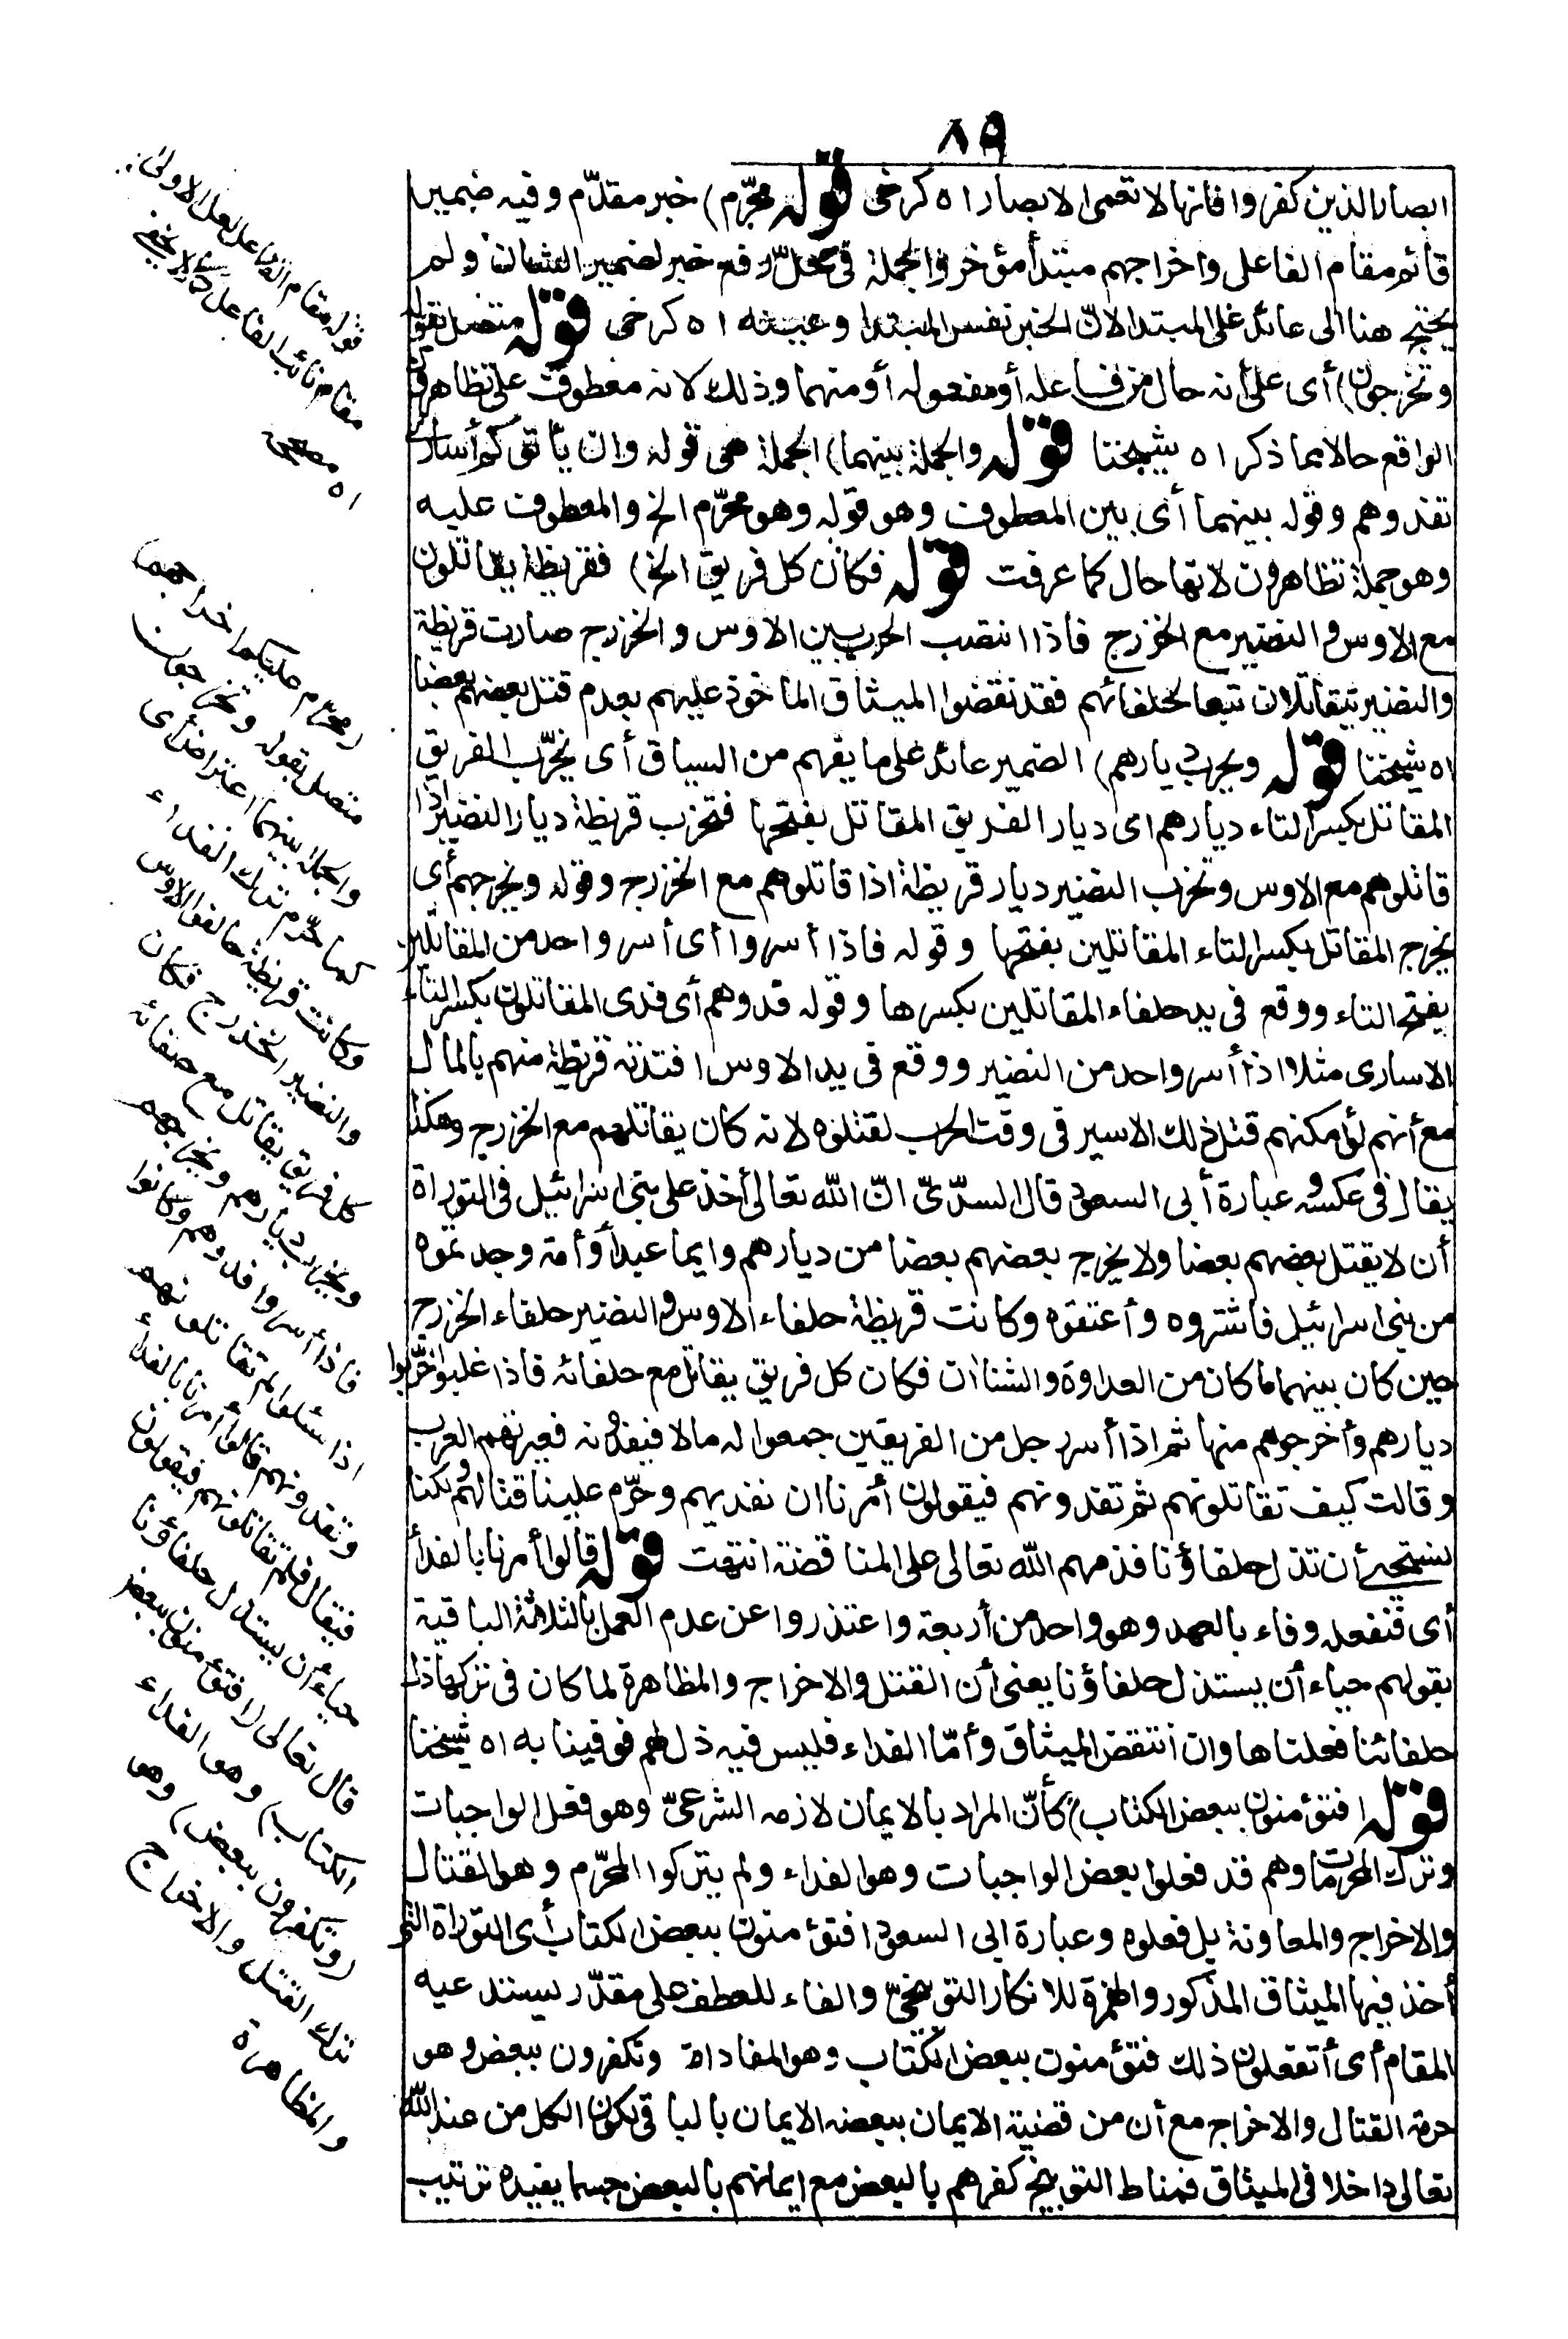 ٨٩
ابصار الذين كفروا فانها لا تعمى الابصار اه كرخى قوله محرّم) خبر مقدّم وفيه ضمير
قائم مقام الفاعل واخراجهم مبتدأ مؤخر والجملة فى محلّ رفع خبر لضمير الشان ولم
يحتج هنا الى عائد على المبتدا لانّ الخبر نفس المبتدا وعينه اه كرخى قوله متصل بقوله
وتخرجون) أى على أنه حال من فاعله أو مفعوله أو منهما وذلك لانه معطوف على تظاهرون
الواقع حالا مما ذكر اه شيخنا قوله والجملة بينهما) الجملة هى قوله وان يأتوكم أسارى
تفدوهم وقوله بينهما أى بين المعطوف وهو قوله وهو محرّم الخ والمعطوف عليه
وهو جملة تظاهرون لانها حال كما عرفت قوله فكان كل فريق الخ) فقريظة يقاتلون
مع الاوس والنضير مع الخزرج فاذا انتصب الحرب بين الاوس والخزرج صارت قريظة
والنضير يتقاتلان تبعا لحلفائهم فقد نقضوا الميثاق الماخوذ عليهم بعدم قتل بعضهم بعضا
اه شيخنا قوله ويخرب ديارهم) الضمير عائد على ما يفهم من السياق أى يخرّب الفريق
المقاتل بكسر التاء ديارهم اى ديار الفريق المقاتل بفتحها فتخرب قريظة ديار النضير اذا
قاتلوهم مع الاوس وتخرب النضير ديار قريظة اذا قاتلوهم مع الخزرج وقوله ويخرجهم أى
يخرج المقاتل بكسر التاء المقاتلين بفتحها وقوله فاذا أسروا أى أسر واحد من المقاتلين
بفتح التاء ووقع فى يد حلفاء المقاتلين بكسرها وقوله فدوهم أى فدى المقاتلون بكسر التاء
الاسارى مثلا اذا أسر واحد من النضير ووقع فى يد الاوس افتدته قريظة منهم بالمال
مع أنهم لو أمكنهم قتل ذلك الاسير فى وقت الحرب لقتلوه لانه كان يقاتلهم مع الخزرج وهكذا
يقال فى عكسه وعبارة أبى السعود قال السدّىّ انّ الله تعالى أخذ على بنى اسرائيل فى التوراة
أن لا يقتل بعضهم بعضا ولا يخرج بعضهم بعضا من ديارهم وايما عبد أو أمة وجدتموه
من بنى اسرائيل فاشتروه وأعتقوه وكانت قريظة حلفاء الاوس والنضير حلفاء الخزرج
حين كان بينهما ما كان من العداوة والشنآن فكان كل فريق يقاتل مع حلفائه فاذا غلبوا خرّبوا
ديارهم وأخرجوهم منها ثم اذا أسر رجل من الفريقين جمعوا له مالا فيفدونه فعيرتهم العرب
وقالت كيف تقاتلونهم ثم تفدونهم فيقولون أمرنا ان نفديهم وحرّم علينا قتالهم ولكنا
نستحى أن تذل حلفاؤنا فذمهم الله تعالى على المناقضة انتهت قوله قالوا أمرنا بالفدأ
أى فنفعله وفاء بالعهد وهو واحد من أربعة واعتذروا عن عدم العمل بالثلاثة الباقية
بقولهم حياء أن يستذل حلفاؤنا يعنى أن القتل والاخراج والمظاهرة لما كان فى تركها ذل
حلفائنا فعلناها وان انتقض الميثاق وأمّا الفداء فليس فيه ذل لهم فوفينا به اه شيخنا
قوله افتؤمنون ببعض الكتاب) كأنّ المراد بالايمان لازمه الشرعىّ وهو فعل الواجبات
وترك المحرمات وهم قد فعلوا بعض الواجبات وهو الفداء ولم يتركوا المحرّم وهو القتال
والاخراج والمعاونة بل فعلوه وعبارة ابى السعود افتؤمنون ببعض الكتاب أى التوراة التى
أخذ فيها الميثاق المذكور والهمزة للانكار التوبيخىّ والفاء للعطف على مقدّر يستدعيه
المقام أى أتفعلون ذلك فتؤمنون ببعض الكتاب وهو المفاداة وتكفرون ببعض وهو
حرمة القتال والاخراج مع أن من قضية الايمان ببعضه الايمان بالباقى لكون الكل من عند الله
تعالى داخلا فى الميثاق فمناط التوبيخ كفرهم بالبعض مع ايمانهم بالبعض حسبما يفيده ترتيب
قوله مقام الفاعل لعل الاولى
مقام نائب الفاعل كما لا يخفى
اه مصححه
(محرّم عليكم اخراجهم)
متصل بقوله وتخرجون
والجملة بينهما اعتراض أى
كما حرّم ترك الفداء
وكانت قريظة حالفوا الاوس
والنضير الخزرج فكان
كل فريق يقاتل مع حلفائه
ويخرب ديارهم ويخرجهم
فاذا أسروا فدوهم وكانوا
اذا سئلوا لم تقاتلونهم
وتفدونهم قالوا أمرنا بالفداء
فيقال فلم تقاتلونهم فيقولون
حياء أن يستذل حلفاؤنا
قال تعالى (افتؤمنون ببعض
الكتاب) وهو الفداء
(وتكفرون ببعض) وهو
ترك القتل والاخراج
والمظاهرة